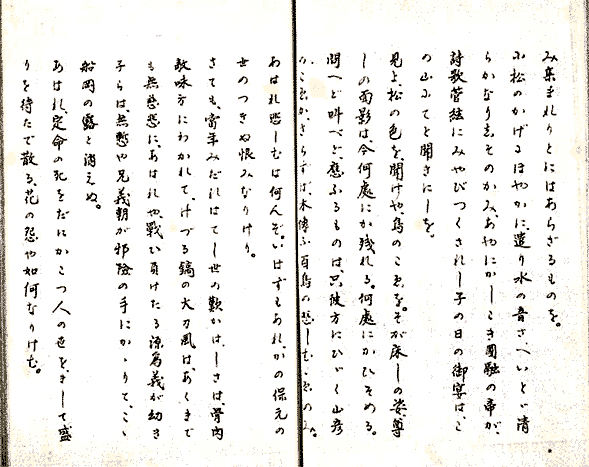 み集まれりとにはあらざるものを。
小松のかげはほやかに、遣り水の音さへいとゞ清
らかなりき。そのかみ、あやにかしこき圓融の帝が、
詩歌管絃にみやびつくされし子の日の御宴は、こ
の山にてと聞きにしを。
見よ、松の色を、聞けや、鳥のこゑを。そが床しの姿、尊
しの面影は、今何處にか殘れる。何處にかひそめる。
問へど叫べど、應ふるものは、只彼方にひゞく山彦
のこゑか、さらずば、木傳ふ百鳥の悲しむこゑのみ。
あはれ悲しむは何んぞ。いはずもあれ、かの保元の
世のつきぬ恨みなりけり。
さても、當年みだれはてし世の歎かはしさは、骨肉
敵味方にわかれて、けづる鎬の太刀風は、あくまで
も無慈悲に、あはれや、戰ひ負けたる源爲義が幼き
子らは、無慙や兄義朝が邪險の手にかゝりて、こゝ
船岡の露と消えぬ。
あはれ、定命の死をだにかこつ人の世を、まして盛
りを待たで散る、花の怨や如何なりけむ。